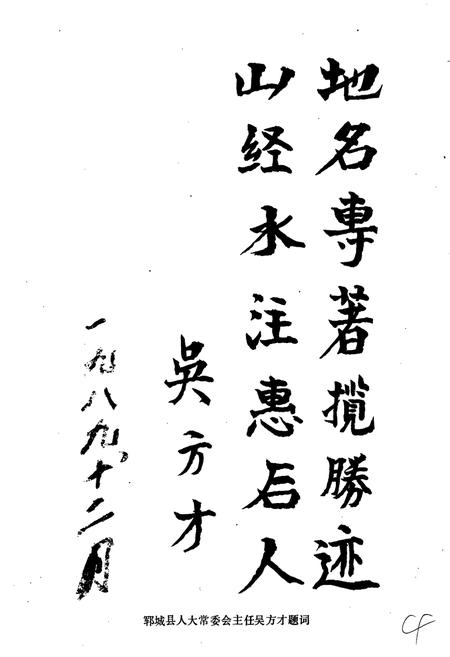 地名專著揽勝迹
山经水注惠后人
吳方才
一九八九、十二月
郓城县人大常委会主任吴方才题词
CF